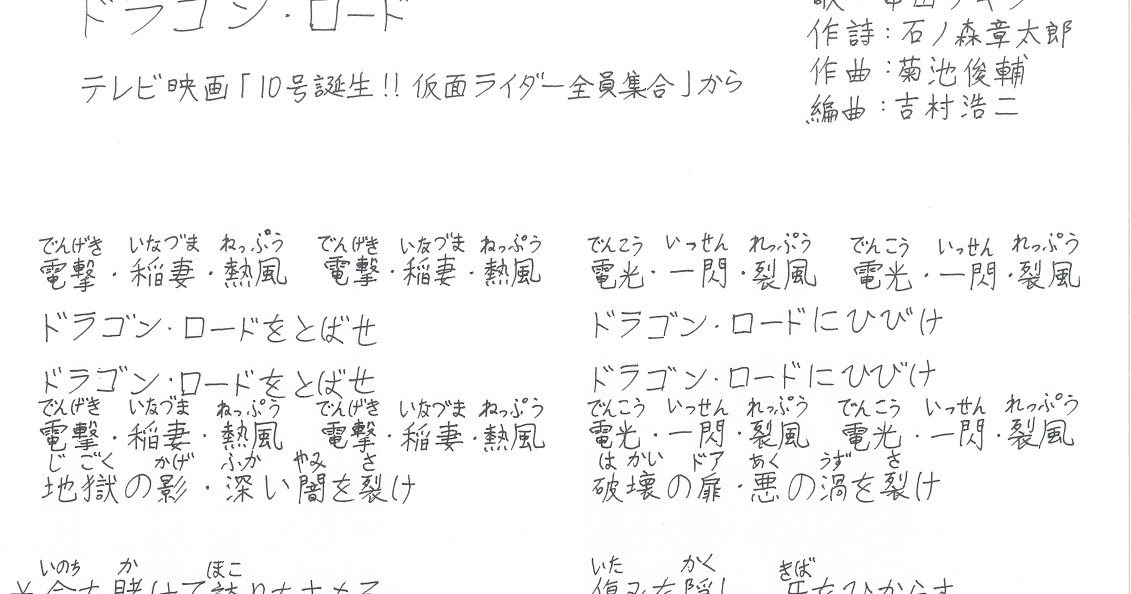 ドラゴン・ロード
作詩：石ノ森章太郎
テレビ映画「10号誕生!! 仮面ライダー全員集合」から
作曲：菊池俊輔
編曲：吉村浩二
でんげき いなづま ねっぷう でんげき いなづま ねっぷう
電撃・稲妻・熱風 電撃・稲妻・熱風
ドラゴン・ロードをとばせ
ドラゴン・ロードをとばせ
でんげき いなづま ねっぷう でんげき いなづま ねっぷう
電撃・稲妻・熱風 電撃・稲妻・熱風
じごく かげ ふか やみ さ
地獄の影・深い闇を裂け
いのち か ほこ
でんこう いっせん れっぷう でんこう いっせん れっぷう
電光・一閃・裂風 電光・一閃・裂風
ドラゴン・ロードにひびけ
ドラゴン・ロードにひびけ
でんこう いっせん れっぷう でんこう いっせん れっぷう
電光・一閃・裂風 電光・一閃・裂風
はかい ドア あく うず さ
破壊の扉・悪の渦を裂け
いた かく きば